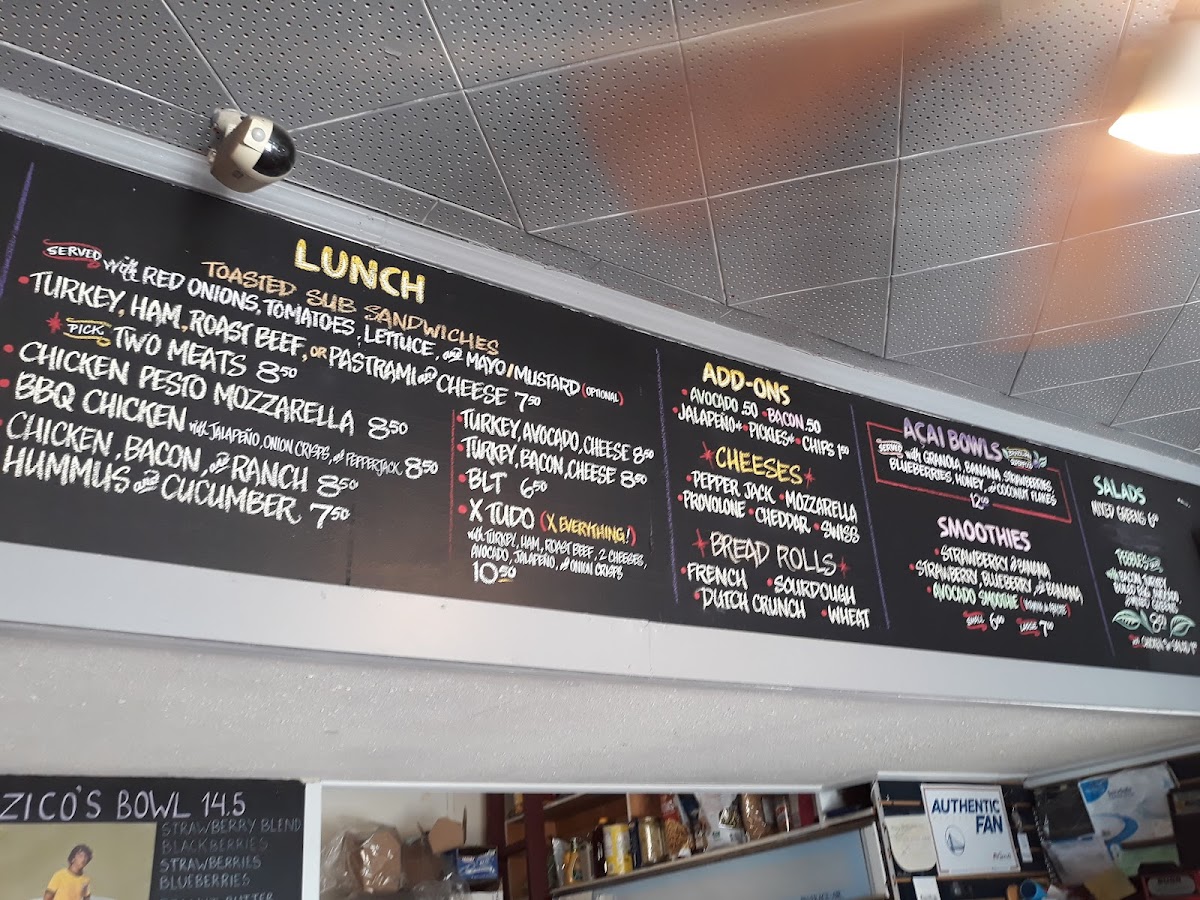 LUNCH
TOASTED SUB SANDWICHES
SERVED with RED ONIONS, TOMATOES, LETTUCE, and MAYO/MUSTARD (OPTIONAL)
• TURKEY, HAM, ROAST BEEF, OR PASTRAMI and CHEESE 7.50
* PICK TWO MEATS 8.50
• CHICKEN PESTO MOZZARELLA 8.50
• BBQ CHICKEN with JALAPEÑO, ONION CRISPS, and PEPPERJACK 8.50
• CHICKEN, BACON, and RANCH 8.50
HUMMUS and CUCUMBER 7.50
• TURKEY, AVOCADO, CHEESE 8.50
• TURKEY, BACON, CHEESE 8.50
• BLT 6.50
• X TUDO (X EVERYTHING!)
with TURKEY, HAM, ROAST BEEF, 2 CHEESES,
AVOCADO, JALAPEÑO, and ONION CRISPS
10.50
ADD-ONS
• AVOCADO .50 • BACON .50
• JALAPEÑO • PICKLES • CHIPS 1.50
CHEESES
• PEPPER JACK • MOZZARELLA
• PROVOLONE • CHEDDAR • SWISS
BREAD ROLLS
• FRENCH • SOURDOUGH
• DUTCH CRUNCH • WHEAT
AÇAI BOWLS
SERVED with GRANOLA, BANANA, STRAWBERRIES
BLUEBERRIES, HONEY, and COCONUT FLAKES
12.00
SMOOTHIES
• STRAWBERRY and BANANA
• STRAWBERRY, BLUEBERRY, and BANANA
• AVOCADO SMOOTHIE
SMALL 6.00 LARGE 7.00
SALADS
MIXED GREENS 6.00
with BACON, TURKEY,
CHICKEN SALAD
ZICO'S BOWL 14.5
STRAWBERRY BLEND
BLACKBERRIES
STRAWBERRIES
BLUEBERRIES
AUTHENTIC
FAN